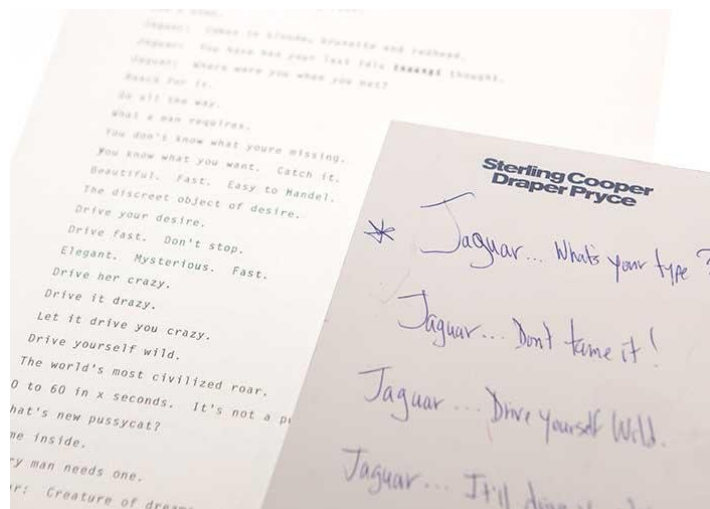 Jaguar: Comes in blonde, brunette and redhead.
Jaguar: You have had your last idle thought.
Jaguar: Where were you when you met?
Reach for it.
Go all the way.
What a man requires.
You don't know what youre missing.
You know what you want. Catch it.
Beautiful. Fast. Easy to Handel.
The discreet object of desire.
Drive your desire.
Drive fast. Don't stop.
Elegant. Mysterious. Fast.
Drive her crazy.
Drive it drazy.
Let it drive you crazy.
Drive yourself wild.
The world's most civilized roar.
0 to 60 in x seconds. It's not a
hat's new pussycat?
me inside.
ry man needs one.
ar: Creature of dream
Sterling Cooper
Draper Pryce
* Jaguar... What's your type?
Jaguar... Don't tame it!
Jaguar... Drive yourself Wild.
Jaguar... It'll